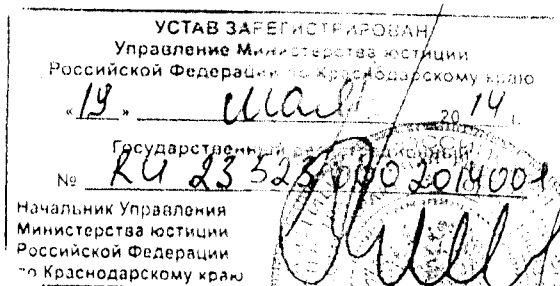 УСТАВ ЗАРЕГИСТРИРОВАН
Управление Министерства юстиции
Российской Федерации по Краснодарскому краю
« 19 » мая 20 14 г.
Государственный регистрационный
№ RU 23 525 000 2014001
Начальник Управления
Министерства юстиции
Российской Федерации
по Краснодарскому краю